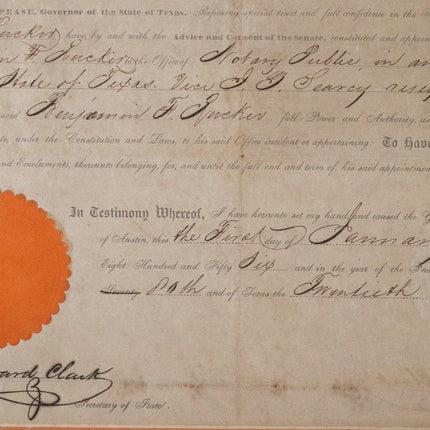 PEASE, Governor of the State of Texas. Reposing special trust and full confidence in the
Rucker have, by and with the Advice and Consent of the Senate, constituted and appoin
n F Rucker to the Office of Notary Public, in an
State of Texas. Vice J. G. Searcy resig
said Benjamin F. Rucker full Power and Authority, as
ts, under the Constitution and Laws, to his said Office incident or appertaining: To Have
and Emoluments, thereunto belonging, for, and until the full end and term of, his said appointment
In Testimony Whereof, I have hereunto set my hand and caused the G
of Austin, this the First day of Januar
Eight Hundred and Fifty Six and in the year of the In
Seventy 80th and of Texas the Twentieth
ward Clark
Secretary of State.